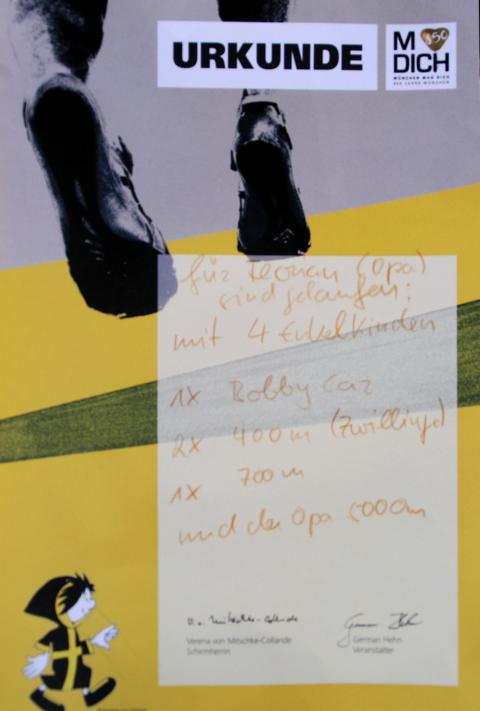 URKUNDE
M 850
DICH
MÜNCHEN MAG DICH
850 JAHRE MÜNCHEN
für (Opa)
sind gelaufen:
mit 4 Enkelkinden
1x Bobby Car
2x 400m (Zwillinge)
1x 700m
und der Opa 5000m
Verena von Mitschke-Collande
Schirmherrin
German Hehn
Veranstalter